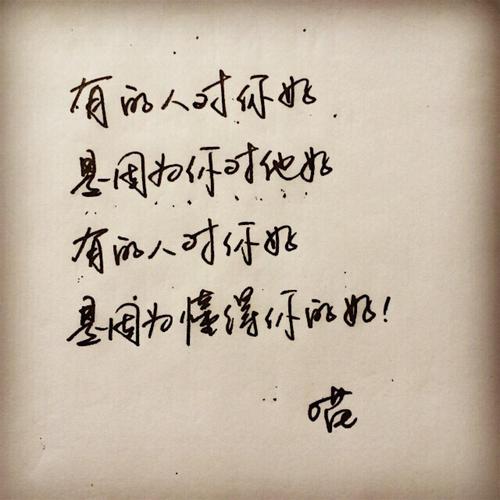 有的人对你好
是因为你对他好
有的人对你好
是因为懂得你的好!
喵